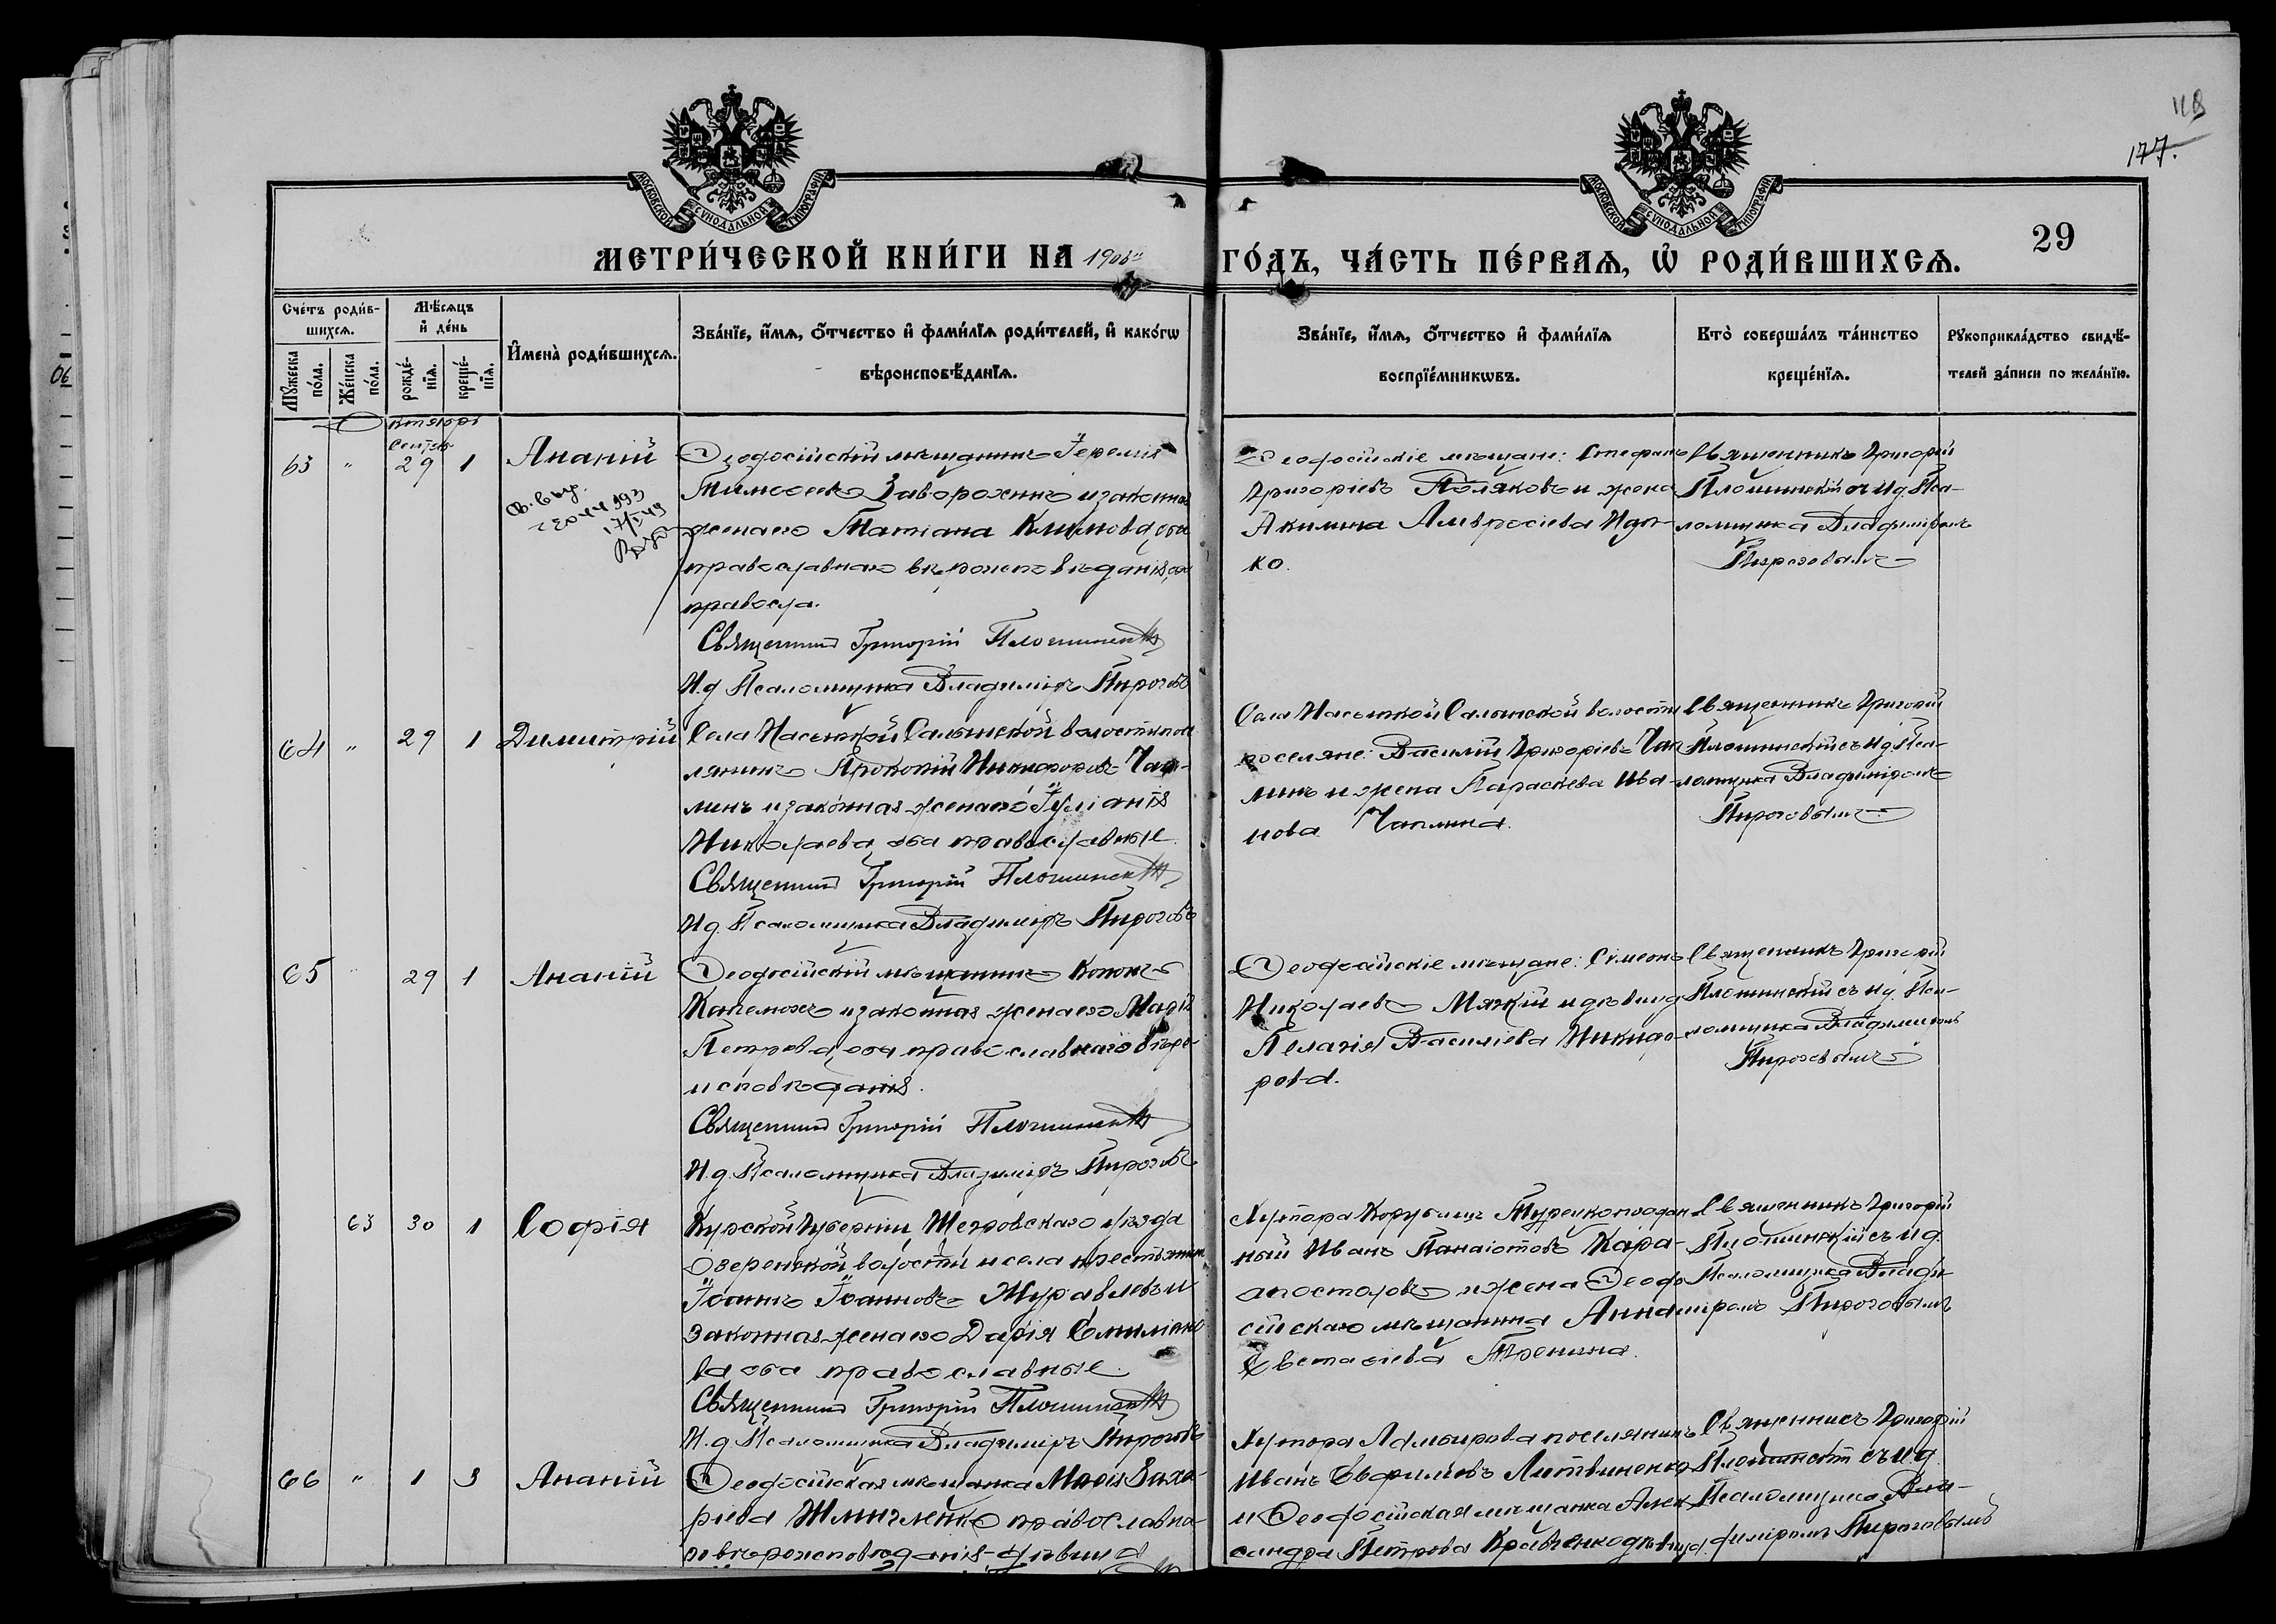 118
177.
29
МОСКОВСКОЙ СУНОДАЛЬНОЙ ТИПОГРАФІИ
МОСКОВСКОЙ СУНОДАЛЬНОЙ ТИПОГРАФІИ
МЕТРИ́ЧЕСКОЙ КНИ́ГИ НА 1908
ГО́ДЪ, ЧА́СТЬ ПЕ́РВАѦ, Ѡ҆ РОДИ́ВШИХСѦ.
Сче́тъ роди́в-
шихсѧ.
Мѣ́сѧцъ
и҆ де́нь
Мꙋ́жеска по́ла.
Же́нска по́ла.
рожде́-
нїѧ.
креще́-
нїѧ.
И҆мена̀ роди́вшихсѧ.
Зва́нїе, и҆́мѧ, ѻ҆́тчество и҆ фами́лїѧ роди́телей, и҆ како́гѡ
вѣроисповѣ́данїѧ.
Зва́нїе, и҆́мѧ, ѻ҆́тчество и҆ фами́лїѧ
воспрїе́мникѡвъ.
Кто̀ соверша́лъ та́инство
креще́нїѧ.
Рꙋкоприкла́дство свидѣ́-
телей за́писи по жела́нїю.
Октябрь
Сентяб
63 " 29 1 Ананій
Ѳеодосійскій мѣщанинъ Іеремія
Тимоѳеевъ Заворохинъ и законная
жена его Татіана Климова, оба
православнаго вѣроисповѣданія, оба
правосла.
Священникъ Григорій Плошинскій
И.д. Псаломщика Владиміръ Пироговъ
Ѳеодосійскіе мѣщане: Стефанъ
Григоріевъ Поляковъ и жена
Акилина Амвросіева Идл-
ко.
Священникъ Григорій
Плошинскій съ и.д. Пса-
ломщика Владиміромъ
Пироговымъ
64 " 29 1 Димитрій
Села Насыпкой Салынской волости посе
лянинъ Прокопій Никифоровъ Чап-
линъ и законная жена его Іуліанія
Николаева, оба православные.
Священникъ Григорій Плошинскій
И.д. Псаломщика Владиміръ Пироговъ
Села Насыпкой Салынской волости
поселяне: Василій Григоріевъ Чап
линъ и жена Параскева Ива-
нова Чаплина.
Священникъ Григорій
Плошинскій съ и.д. Пса-
ломщика Владиміромъ
Пироговымъ
65 " 29 1 Ананій
Ѳеодосійскій мѣщанинъ Кононъ
и законная жена его Марія
Петрова, оба православнаго вѣро-
исповѣданія.
Священникъ Григорій Плошинскій
И.д. Псаломщика Владиміръ Пироговъ
Ѳеодосійскіе мѣщане: Симеонъ
Николаевъ Мягкій и дѣвица
Пелагія Василіева Никифо-
рова.
Священникъ Григорій
Плошинскій съ и.д. Пса-
ломщика Владиміромъ
Пироговымъ
63 30 1 Софія
Курской губерніи, Щегровскаго уѣзда
Озеренской волости и села крестьянинъ
Іоаннъ Іоанновъ Журавлевъ и
законная жена его Дарія Емиліано
ва оба православные.
Священникъ Григорій Плошинскій
И.д. Псаломщика Владиміръ Пироговъ
Хутора Турецкоподдан
ный Иванъ Панаіотовъ Кара-
апостоловъ и жена Ѳеодо
сійскаго мѣщанина Анна
Евстафіева Тренина.
Священникъ Григорій
Плошинскій съ и.д.
Псаломщика Влади
міромъ Пироговымъ
66 " 1 3 Ананій
Ѳеодосійская мѣщанка Марія Заха-
ріева православна-
го вѣроисповѣданія - дѣвица
Хутора поселянинъ
Иванъ Евфиміевъ Литвиненко
и Ѳеодосійская мѣщанка Алек
сандра Петрова Кравченко дѣвица.
Священникъ Григорій
Плошинскій съ и.д.
Псаломщика Вла-
диміромъ Пироговымъ